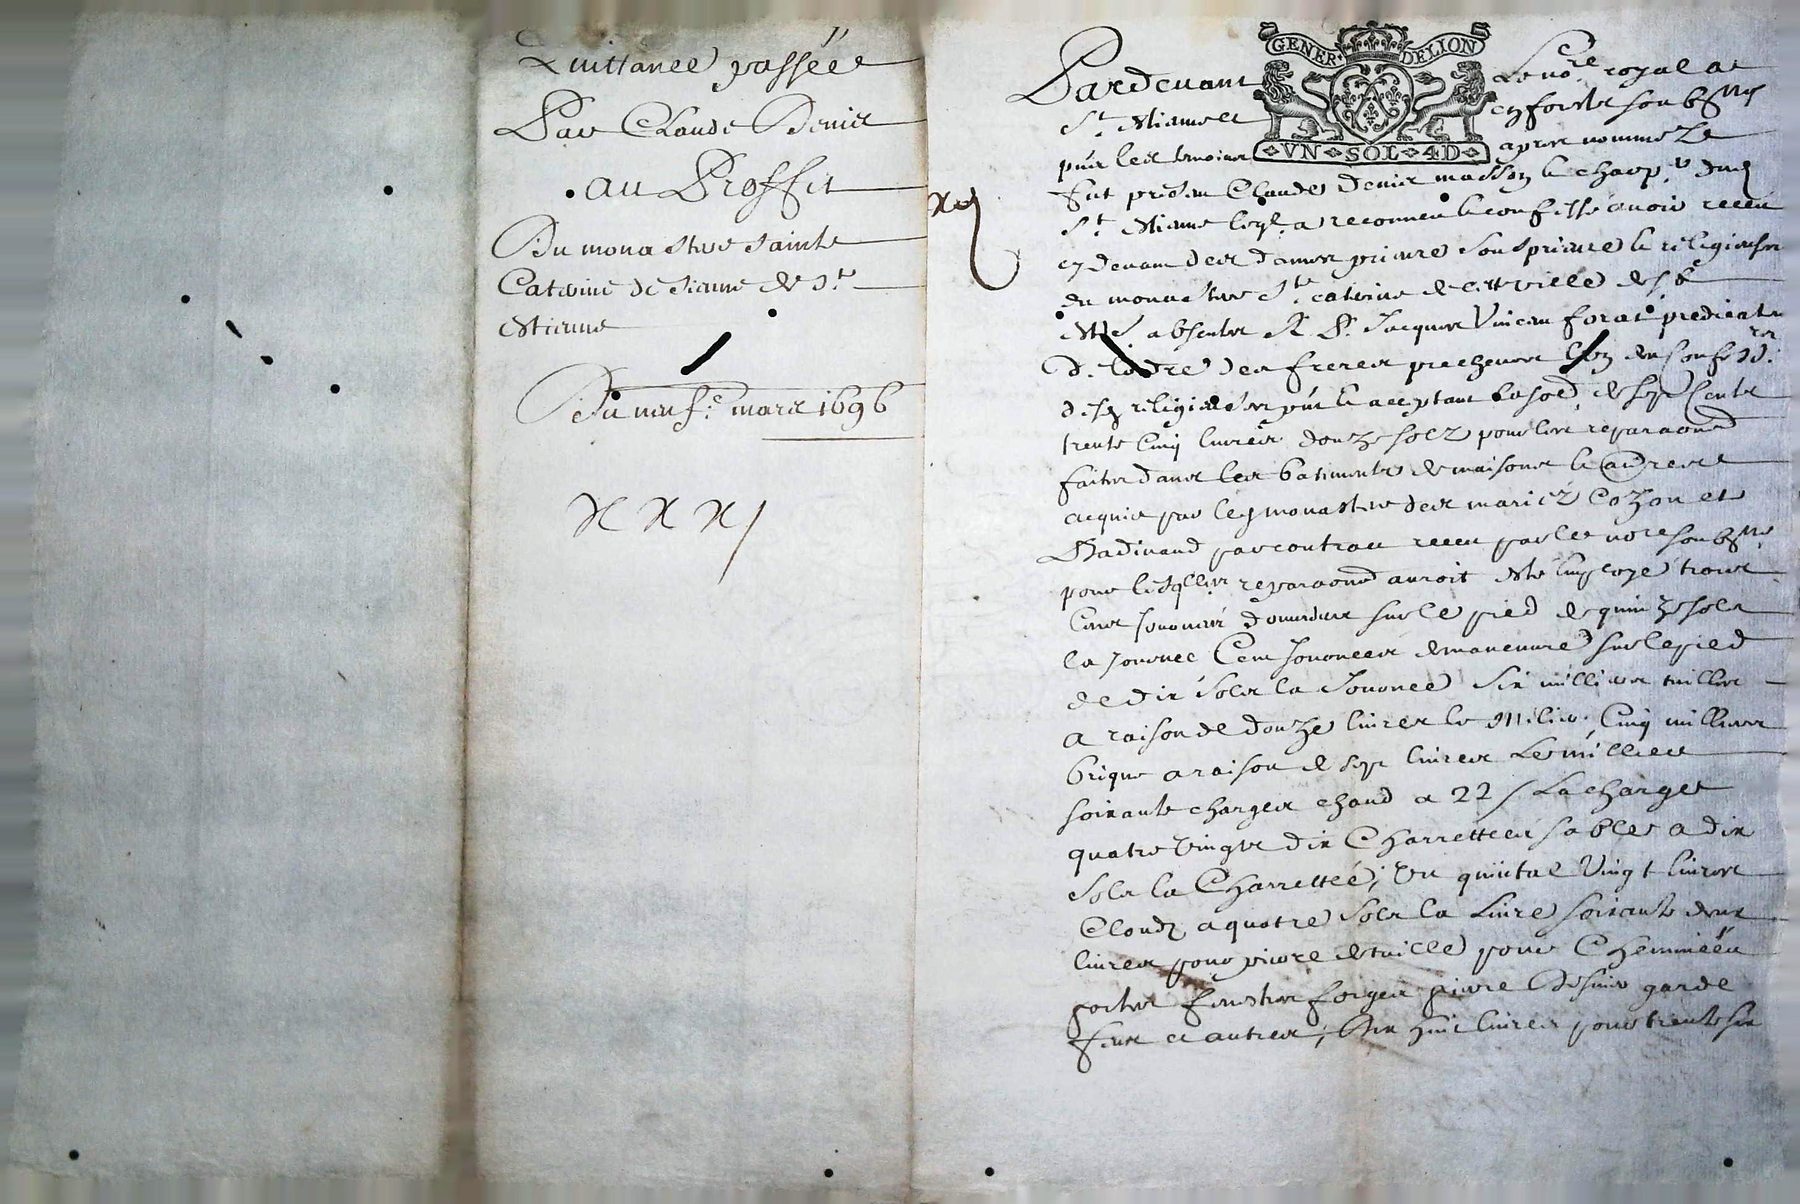 Quittance passée
Par Claude Denis
au Proffit
Du monastere sainte
Caterine de sienne de St
Etienne
Du neuf.e mars 1696
XXXJ
GENER. DE LION
VN SOL 4D
Pardevant Le no.re royal a
St Etienne
en forestz soubz.né
puis les tesmoins apres nommez
fut present Claude Denis masson & charp.r dud
St Etienne leql a reconneu & confessé avoir receu
cy devant des dames prieure soubsprieure & religieuses
du monastere Ste caterine de cette ville de St
absentes R. P. Jacques Vincent forat predicateur
de l'ordre des freres prescheurs
religieuses acceptant la so.e de sept Cents
trente Cinq livres douze solz pour les reparaons
faites dans les batiments de maisons &
acquis par led monastere des mariez Cozon et
Badinand par contrac receu par le no.re soubz.né
pour lesqlles reparaons auroit esté employé trois
Cens Journées sur le pied de quinze sols
la Journee Cent Journees de maneuvre sur le pied
de dix sols la Journee six milliers tuilles
a raison de douze livres le Milier. Cinq milliers
brique a raison de sept livres Le millier
soixante charges chaud a 22 s La charge
quatre vingts dix Charrettées sables a dix
sols la Charrettée, Un quintal Vingt livres
Cloudz a quatre sols la Livre soixante deux
livres pour pierre de taille pour Cheminées
portes fenestres forges pierre garde
feux et autres, dix huit livres pour trente six